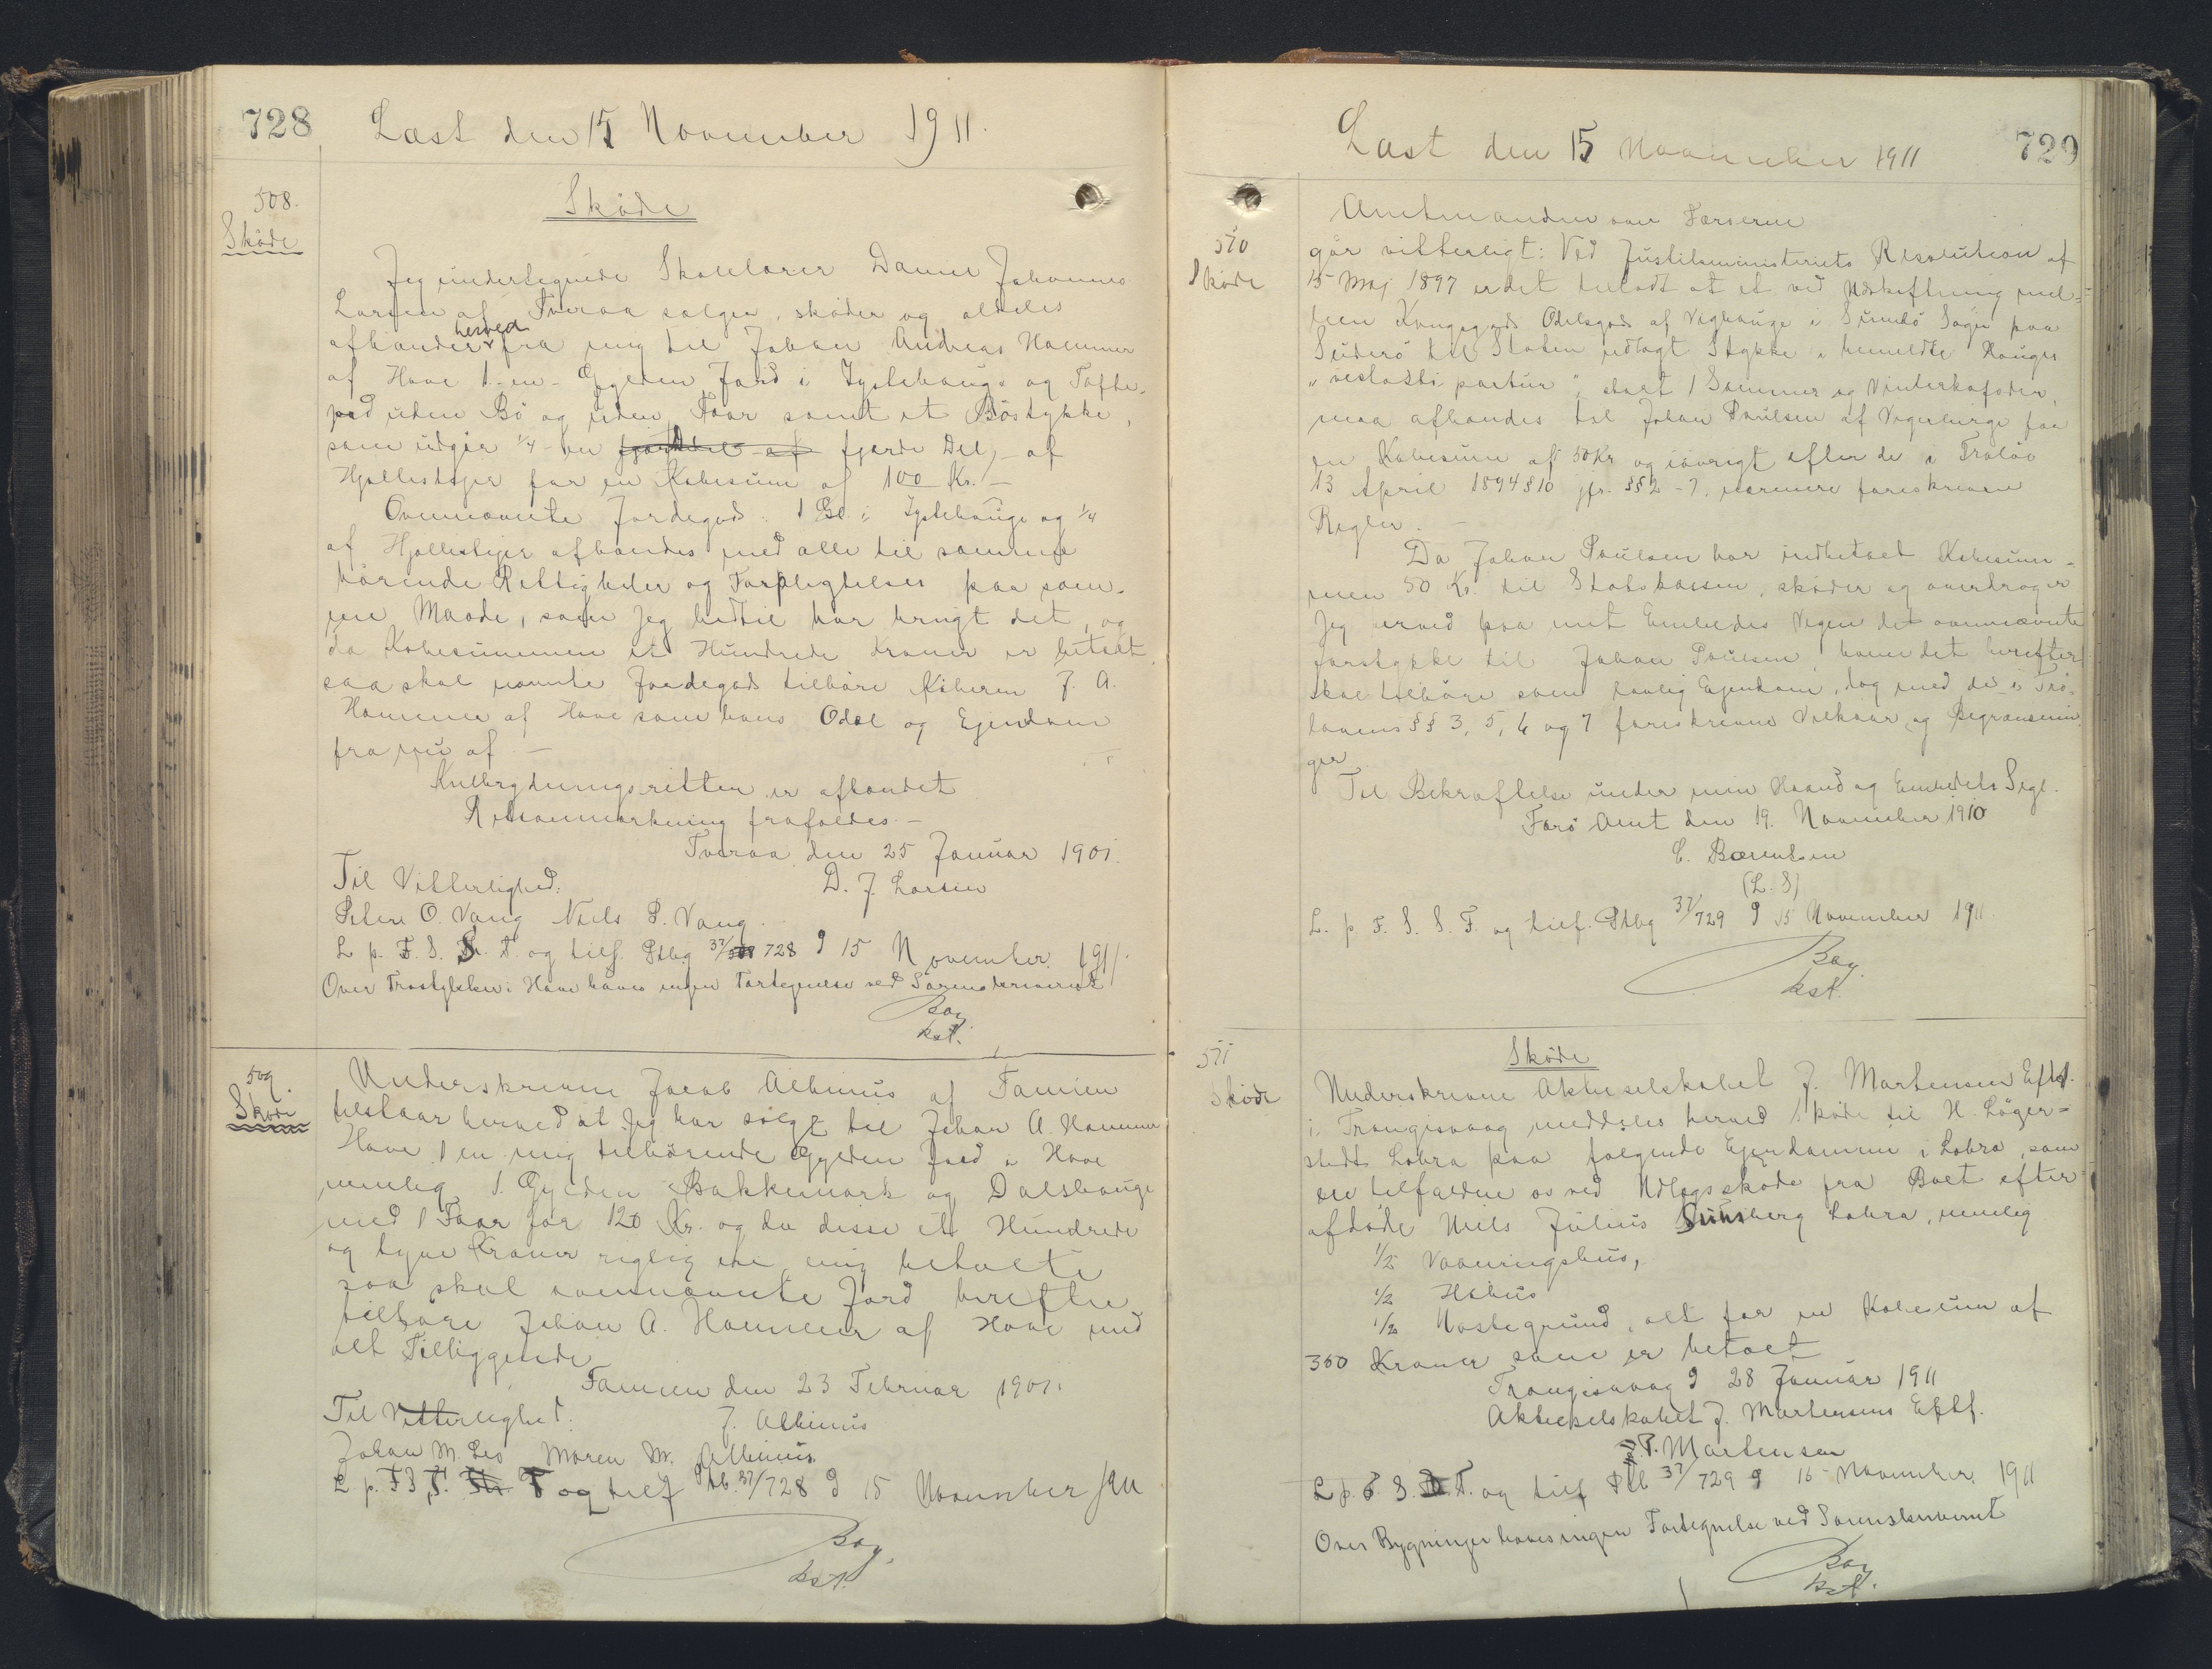 728
Læst den 15 November 1911.
508.
Sköde
Sköde
Jeg undertegnede Skolelærer Daniel Johannes
Larsen af Tveraa sælger, sköder og aldeles
afhænder herved fra mig til Johan Andreas Hammer
af Hove 1 - en - Gylden Jord i Lyslehauge og Tofte-
jord uden Bö og uden Faar samt et Böstykke,
som udgjör 1/4 - en fjerde Del - af
Hjallestejer for en Købesum af 100 Kr. -
Ovennævnte Jordegods: 1 Gl. i Lyslehauge og 1/4
af Hjallestejer afhændes med alle til samme
hörende Rettigheder og Forpligtelser paa sam-
me Maade, som jeg hidtil har brugt det, og
da Købesummen et Hundrede Kroner er betalt,
saa skal nævnte Jordegods tilhöre Køberen J. A.
Hammer af Hove som hans Odel og Ejendom
fra nu af. -
Kulbrydningsretten er afhændet
Retsanmærkning frafaldes. -
Tveraa den 25 Januar 1901.
Til Vitterlighed:
D. J. Larsen
Peter O. Vang Niels P. Vang.
L. p. F. S. S. T. og tilf. Ptbg 37/728 9 15 November 1911.
Over Træstykker i Hove haves ingen Fortegnelse ved Sorenskriveriet
Bay
kst.
509.
Sköde
Underskrevne Jacob Albinus af Famien
tilstaar herved at Jeg har solgt til Johan A. Hammer
Hove 1 en mig tilhörende Gylden Jord i Hove
nemlig 1 Gylden Bakkemark og Dalshauge
med 1 Faar for 120 Kr. og da disse et Hundrede
og tyve Kroner rigtig ere mig betalte
saa skal ovennævnte Jord herefter
tilhöre Johan A. Hammer af Hove med
alt Tilliggende
Famien den 23 Februar 1901.
Til Vitterlighed:
J. Albinus
Johan M. Leo Maren M. Albinus
L. p. F S, S. T og tilf Ptb. 37/728 9 15 November 1911
Bay.
kst.
Læst den 15 November 1911
729
510
Sköde
Amtmanden over Færøerne
gör vitterligt: Ved Justitsministeriets Resolution af
15 Maj 1897 er det tilladt at et ved Udskiftning mel-
lem Kongegods Odelsgods af Vaghauge i Sumbö Sogn paa
Suderö til Staten udlagt Stykke i bemeldte Hauges
"vestasti partur", stort 1 Sommer og Vinterkofoder,
maa afhændes til Johan Poulsen af Vagerberge for
en Købesum af 50 Kr og iövrigt efter de i Trölov
13 April 1894 § 10 jfr. §§ 2 - 7, nærmere foreskrevne
Regler. -
Da Johan Poulsen har indbetalt Købesum-
men 50 Kr. til Statskassen, sköder og overdrager
Jeg herved paa mit Embedes Vegne det ovennævnte
Jorstykke til Johan Poulsen, hvem det herefter
skal tilhöre som lovlig Ejendom, dog med de i Trö-
lovens §§ 3, 5, 6 og 7 foreskrevne Vilkaar og Begrænsnin-
ger
Til Bekræftelse under min Haand og Embedets Segl.
Færö Amt den 19. November 1910
C. Bærentsen
(L. S)
L. p. F. S. S. F. og tilf. Ptbg 37/729 9 15 November 1911.
Bay.
kst.
511
Sköde
Sköde
Underskrevne Aktieselskabet J. Mortensen Eftf.
i Trangisvaag meddeles herved Sköde til H. Löger-
stedt Lobra paa følgende Ejendomme i Lobra, som
ere tilfaldne os ved Udlægssköde fra Boet efter
afdöde Niels Julius Sunsberg Lobra, nemlig
1/2 Vaaningshus,
1/2 Höhus
1/20 Nöstegrund, alt for en Købesum af
350 Kroner som er betalt
Trangisvaag 9 28 Januar 1911
Aktieselskabet J. Mortensens Eftf.
P. Mortensen
L. p. F. S. T. og tilf Ptb 37/729 9 15 November 1911
Over Bygninger haves ingen Fortegnelse ved Sorenskriveriet
Bay
kst.